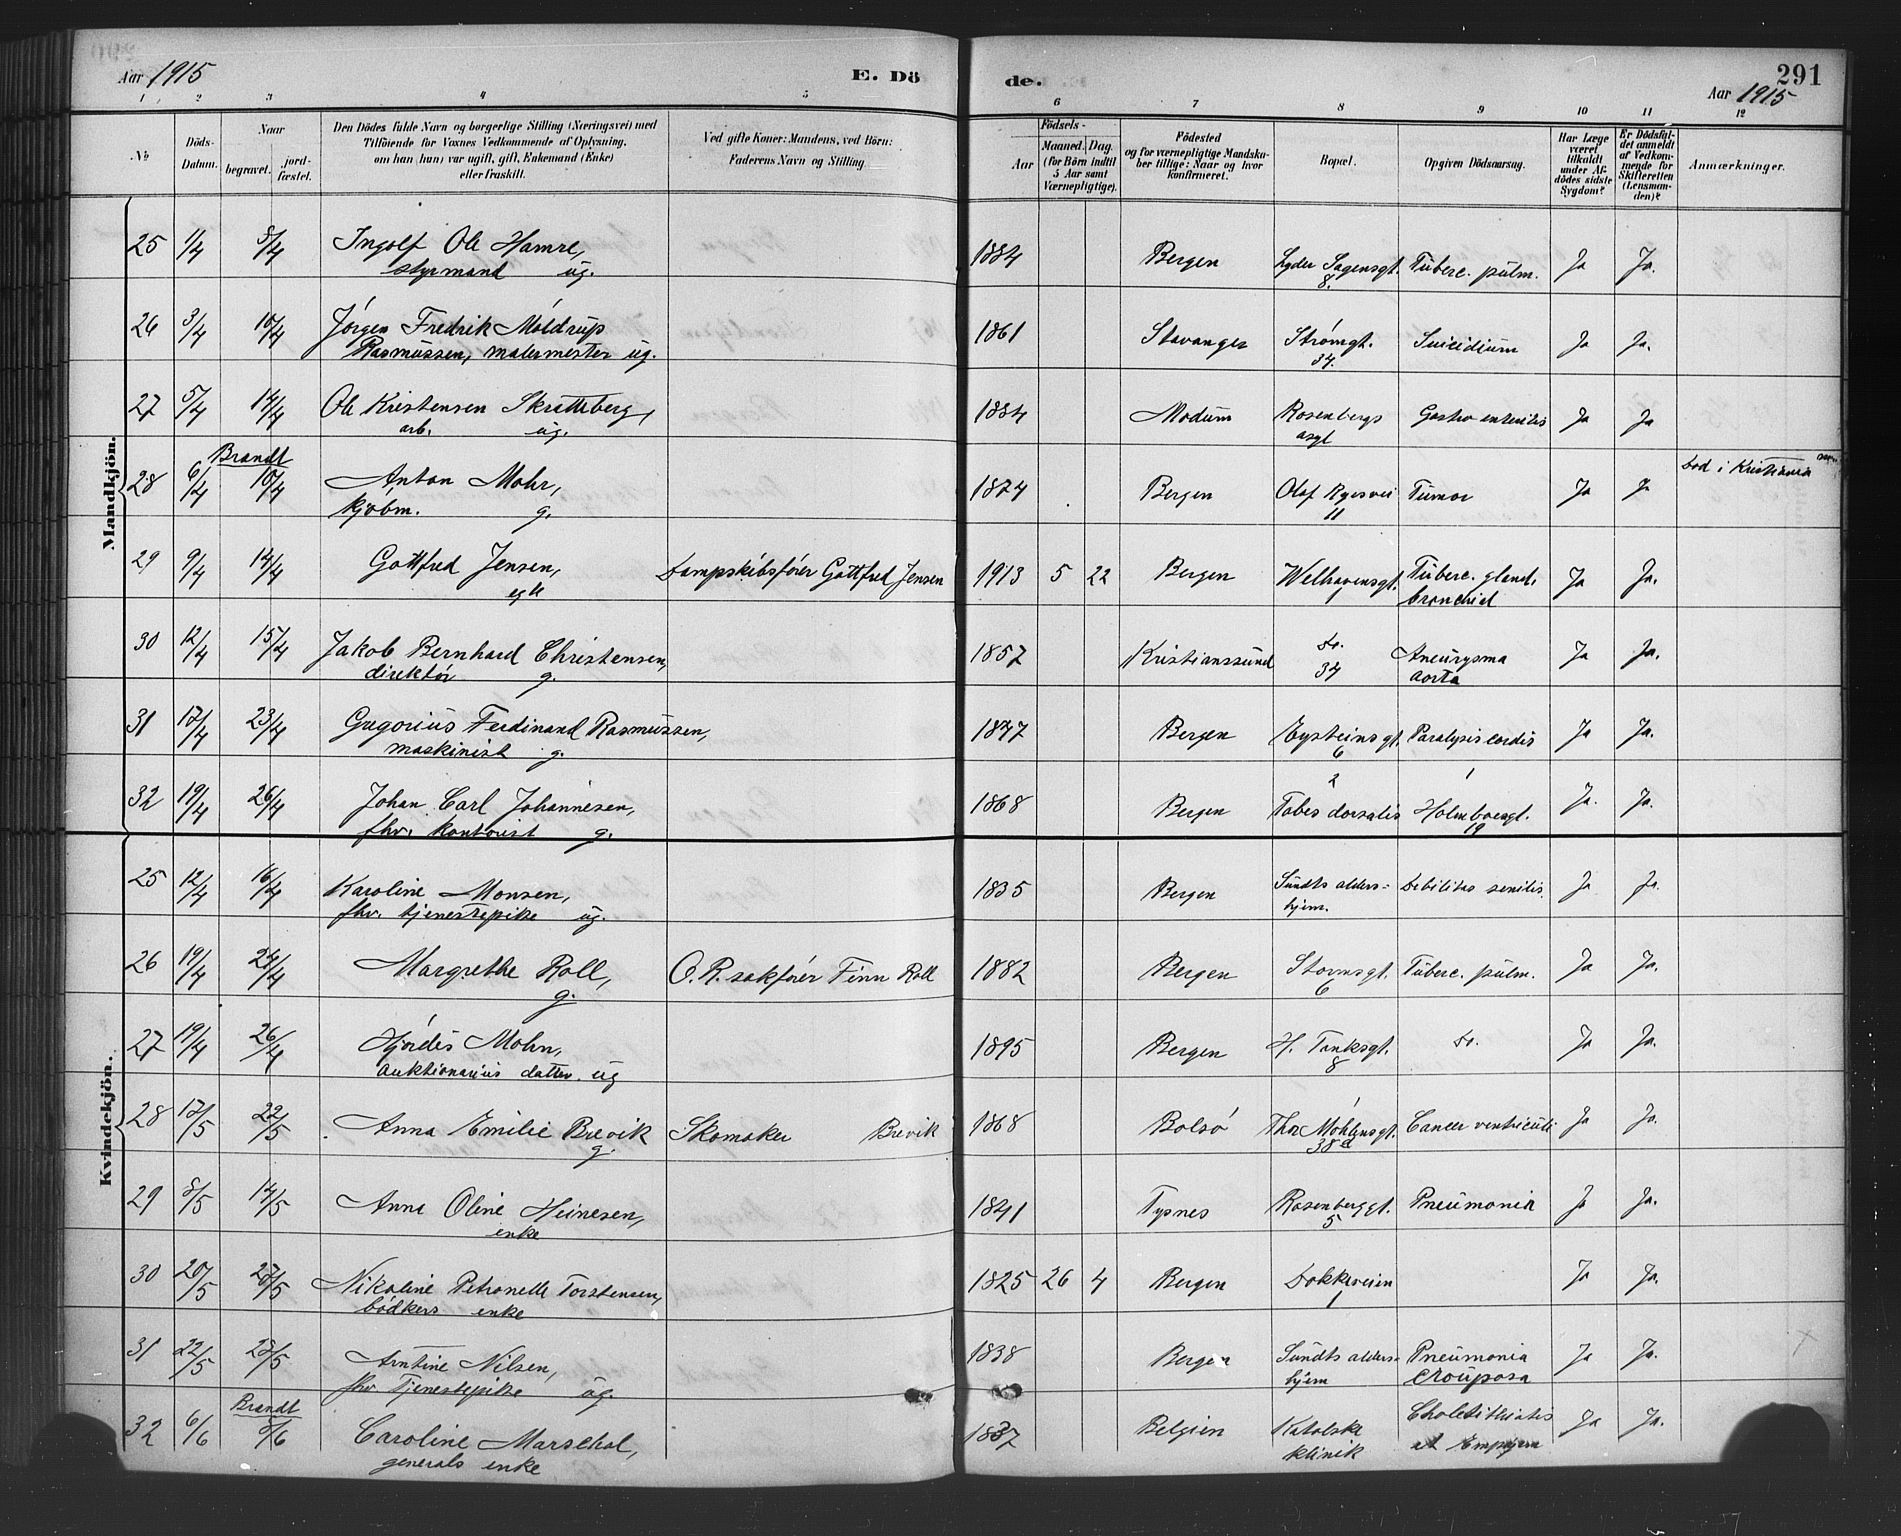 Aar 1915 E. Dö de. 291
Aar 1915
1 2 3 4 5 6 7 8 9 10 11 12
No Döds-Datum. Naar begravet. jord-fæstet. Den Dödes fulde Navn og borgerlige Stilling (Næringsvei) med Tilföiende for Voxnes Vedkommende af Oplysning, om han (hun) var ugift, gift, Enkemand (Enke) eller fraskilt. Ved gifte Koner: Mandens, ved Börn: Faderens Navn og Stilling. Födsels- Aar Maaned. Dag. (for Börn indtil 5 Aar samt Værnepligtige). Födested og for værnepligtige Mandskaber tillige: Naar og hvor konfirmeret. Bopæl. Opgiven Dödsaarsag. Har Læge været tilkaldt under Afdödes sidste Sygdom? Er Dödsfaldet anmeldt af Vedkommende for Skifteretten (Lensmanden)? Anmærkninger.
Mandkjön.
25 1/4 8/4 Ingolf Ole Hamre, 1884 Bergen Lyder Sagensgt. Tuberc. pulm. Ja Ja.
styrmand ug. 8.
26 3/4 10/4 Jörgen Fredrik Möldrup 1861 Stavanger Strömgt. Suicidium Ja Ja.
Rasmussen, malermester ug. 34.
27 5/4 14/4 Ole Kristensen Skratteberg, 1884 Modum Rosenbergs Gastro enteritis Ja Ja
arb. ug. asgt
Brandt
28 6/4 10/4 Anton Mohr, 1874 Bergen Olaf Ryesvei Tumor Ja Ja Död i Kristiania
kjöbm. g. 11
29 9/4 14/4 Gottfred Jensen, Dampskibsförer Gottfred Jensen 1913 5 22 Bergen Welhavensgt. Tuberc. gland. Ja Ja.
egte 1 bronchid
30 12/4 15/4 Jakob Bernhard Christensen, 1857 Kristianssund Do. Aneurysma Ja Ja.
direktör g. 34 aorta
31 17/4 23/4 Gregorius Ferdinand Rasmussen, 1847 Bergen Eysteinsgt. Paralysis cordis Ja Ja.
maskinist g. 6
2 1
32 19/4 26/4 Johan Carl Johannesen, 1868 Bergen Tabes dorsalis Holmboesgt. Ja. Ja.
fhv. kontorist g. 19
Kvindekjön.
25 12/4 16/4 Karoline Monsen, 1835 Bergen Sundts alders- Debilitas senilis. Ja Ja.
fhv. tjenestepike ug. hjem.
26 19/4 24/4 Margrethe Roll, O. R. sakförer Finn Roll 1882 Bergen Stormsgt. Tuberc. pulm. Ja Ja.
g. 6
27 19/4 26/4 Hjördis Mohn, 1895 Bergen H. Tanksgt. Do. Ja Ja.
auktionarius datter. ug 8
28 17/5 22/5 Anna Emilie Brevik Skomaker Brevik 1868 Bolsö Thor Möhlensgt. Cancer ventriculi Ja Ja.
g. 38a
29 8/5 14/5 Anna Oline Heinesen, 1841 Tysnes Rosenberggt. Pneumonia Ja Ja.
enke 5
30 20/5 27/5 Nikoline Petronelle Torstensen, 1825 26 4 Bergen Dokkeveien Ja Ja.
bödkers enke 1
31 22/5 28/5 Arntine Nilsen, 1838 Bergen Sundts alders- Pneumonia Ja Ja.
fhv. tjenestepike ug. hjem crouposa
Brandt
32 6/6 9/6 Caroline Marschal, 1837 Belgien Katolske Cholelithiatis Ja Ja.
generals enke klinik et Empyem